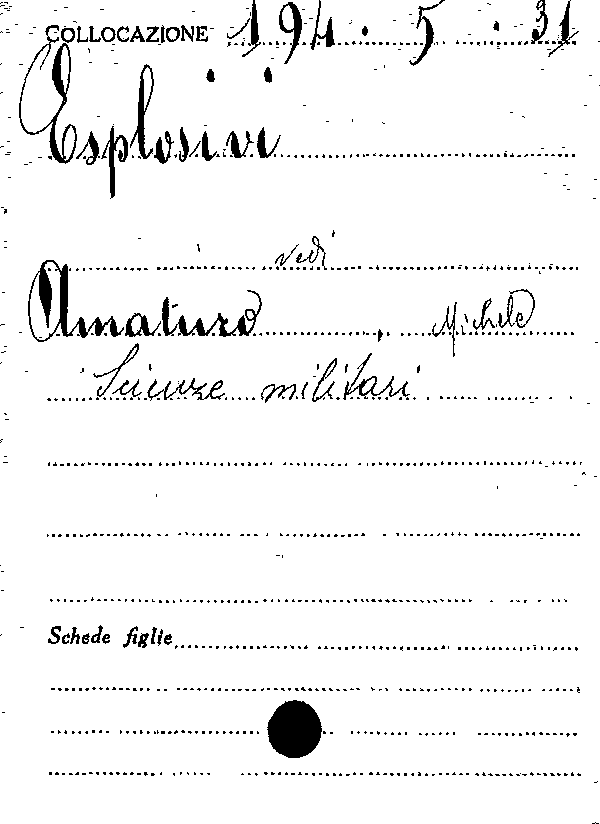 COLLOCAZIONE 194. 5. 31
Esplosivi
vedi
Amaturo, Michele
Scienze militari
Schede figlie